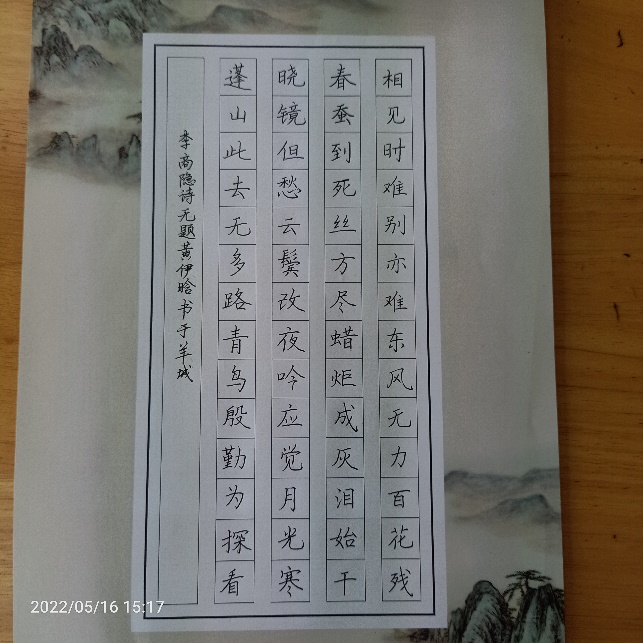 相见时难别亦难东风无力百花残
春蚕到死丝方尽蜡炬成灰泪始干
晓镜但愁云鬓改夜吟应觉月光寒
蓬山此去无多路青鸟殷勤为探看
李商隐诗无题黄伊晗书于羊城
2022/05/16 15:17